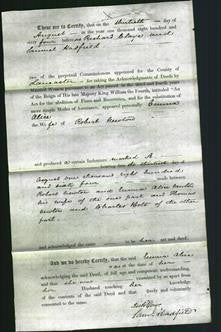 These are to Certify, that on the thirtieth day of
August in the year one thousand eight hundred and
sixty four before us Richard and
Samuel Hadfield
of the perpetual Commissioners appointed for the County of
Lancaster for taking the Acknowledgments of Deeds by
Married Women pursuant to an Act passed in the third and fourth years
of the Reign of His late Majesty King William the Fourth, intituled "An
Act for the abolition of Fines and Recoveries, and for the substitution of
more simple Modes of Assurance," appeared personally Emma
Alice
the Wife of Robert Newton
and produced a certain Indenture marked A
the thirtieth
August one thousand eight hundred
and sixty four
Robert Newton and Emma Alice
his wife of the one part and
and Charles of the other
part
and acknowledged the same to be her act and deed
And we do hereby Certify, that the said Emma Alice
was at the time of her
acknowledging the said Deed, of full age and competent understanding,
and that she was examined by us apart from
her Husband touching her knowledge
of the contents of the said Deed and that she freely and voluntarily
consented to the same.
Saml Hadfield